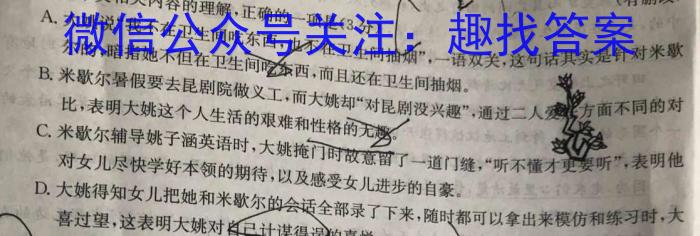 相关内容的理解,正确的一项是(3分)
微信公众号关注:趣找答案
A. 大姚说“我不在卫生间吃东西,也不在卫生间抽烟”,一语双关,这句话其实是针对米歇
尔的,暗指她不但在卫生间吃东西,而且还在卫生间抽烟。
B. 米歇尔暑假要去昆剧院做义工,而大姚却“对昆剧没兴趣”,通过二人爱好方面不同的对
比,表明大姚这个人生活的艰难和性格的无趣。
C. 米歇尔辅导姚子涵英语时,大姚掩门时故意留了一道门缝,“听不懂才更要听”,表明他
对女儿尽快学好本领的期待,以及感受女儿进步的自豪。
D. 大姚得知女儿把她和米歇尔的会话全部录了下来,随时都可以拿出来模仿和练习时,大
喜过望,这表明大姚对自己计谋得逞的喜悦